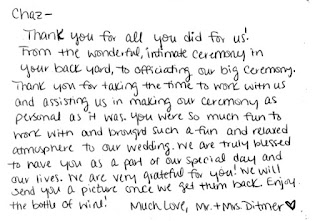 Chaz-
Thank you for all you did for us!
From the wonderful, intimate ceremony in
your back yard, to officiating our big ceremony.
Thank you for taking the time to work with us
and assisting us in making our ceremony as
personal as it was. You were so much fun to
work with and brought such a fun and relaxed
atmosphere to our wedding. We are truly blessed
to have you as a part of our special day and
our lives. We are very grateful for you! We will
send you a picture once we get them back. Enjoy
the bottle of wine! Much Love, Mr. + Mrs. Ditmer ♡